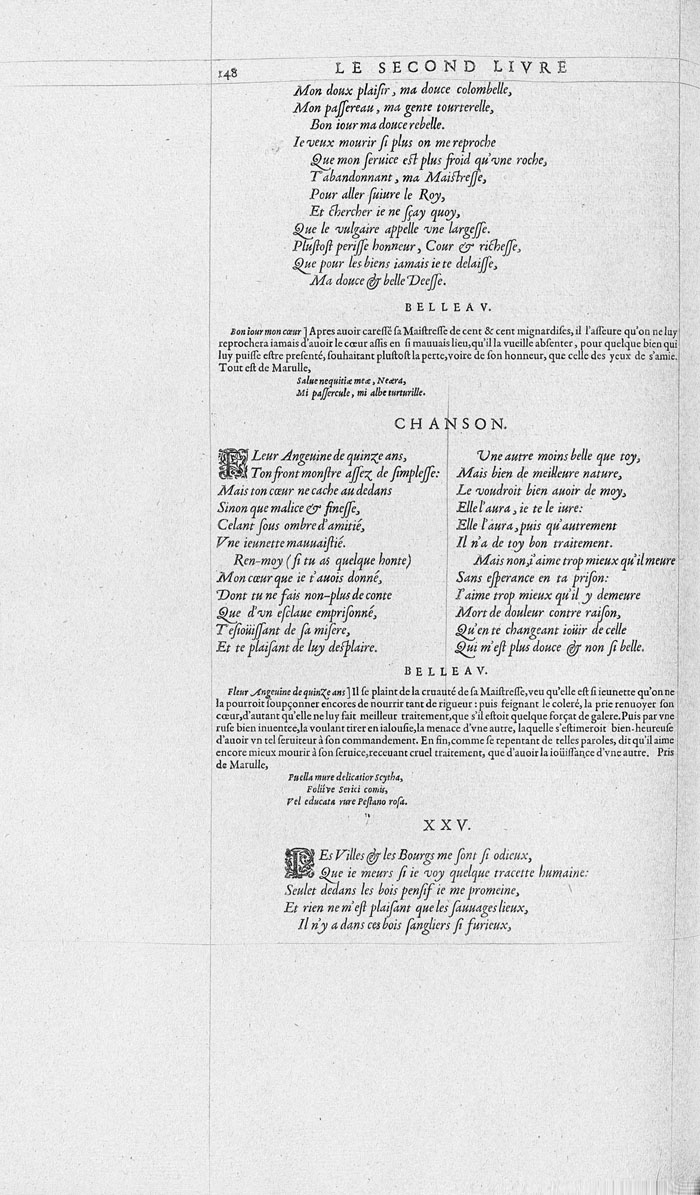 148
LE SECOND LIVRE
Mon doux plaiſir, ma douce colombelle,
Mon paſſereau, ma gente tourterelle,
Bon iour ma douce rebelle.
Ie veux mourir ſi plus on me reproche
Que mon ſeruice eſt plus froid qu'vne roche,
T'abandonnant, ma Maiſtreſſe,
Pour aller ſuiure le Roy,
Et chercher ie ne ſçay quoy,
Que le vulgaire appelle vne largeſſe.
Pluſtoſt periſſe honneur, Cour & richeſſe,
Que pour les biens iamais ie te delaiſſe,
Ma douce & belle Deeſſe.
BELLEAV.
Bon iour mon cœur] Apres auoir careſſé ſa Maiſtreſſe de cent & cent mignardiſes, il l'aſſeure qu'on ne luy
reprochera iamais d'auoir le cœur aſſis en ſi mauuais lieu, qu'il la vueille abſenter, pour quelque bien qui
luy puiſſe eſtre preſenté, ſouhaitant pluſtoſt la perte, voire de ſon honneur, que celle des yeux de s'amie.
Tout eſt de Marulle,
Salue nequitiæ meæ, Neæra,
Mi paſſercule, mi albe turturille.
CHANSON.
FLeur Angeuine de quinze ans,
Ton front monſtre aſſez de ſimpleſſe:
Mais ton cœur ne cache au dedans
Sinon que malice & fineſſe,
Celant ſous ombre d'amitié,
Vne ieunette mauuaiſtié.
Ren-moy (ſi tu as quelque honte)
Mon cœur que ie t'auois donné,
Dont tu ne fais non-plus de conte
Que d'vn eſclaue empriſonné,
T'eſioüiſſant de ſa miſere,
Et te plaiſant de luy deſplaire.
Vne autre moins belle que toy,
Mais bien de meilleure nature,
Le voudroit bien auoir de moy,
Elle l'aura, ie te le iure:
Elle l'aura, puis qu'autrement
Il n'a de toy bon traitement.
Mais non, i'aime trop mieux qu'il meure
Sans eſperance en ta priſon:
I'aime trop mieux qu'il y demeure
Mort de douleur contre raiſon,
Qu'en te changeant ioüir de celle
Qui m'eſt plus douce & non ſi belle.
BELLEAV.
Fleur Angeuine de quinze ans] Il ſe plaint de la cruauté de ſa Maiſtreſſe, veu qu'elle eſt ſi ieunette qu'on ne
la pourroit ſoupçonner encores de nourrir tant de rigueur: puis feignant le coleré, la prie renuoyer ſon
cœur, d'autant qu'elle ne luy fait meilleur traitement, que s'il eſtoit quelque forçat de galere. Puis par vne
ruſe bien inuentee, la voulant tirer en ialouſie, la menace d'vne autre, laquelle s'eſtimeroit bien-heureuſe
d'auoir vn tel ſeruiteur à ſon commandement. En fin, comme ſe repentant de telles paroles, dit qu'il aime
encore mieux mourir à ſon ſeruice, receuant cruel traitement, que d'auoir la ioüiſſance d'vne autre. Pris
de Marulle,
Puella mure delicatior Scytha,
Foliíve Serici comis,
Vel educata rure Peſtano roſa.
XXV.
LEs Villes & les Bourgs me ſont ſi odieux,
Que ie meurs ſi ie voy quelque tracette humaine:
Seulet dedans les bois penſif ie me promeine,
Et rien ne m'eſt plaiſant que les ſauuages lieux,
Il n'y a dans ces bois ſangliers ſi furieux,